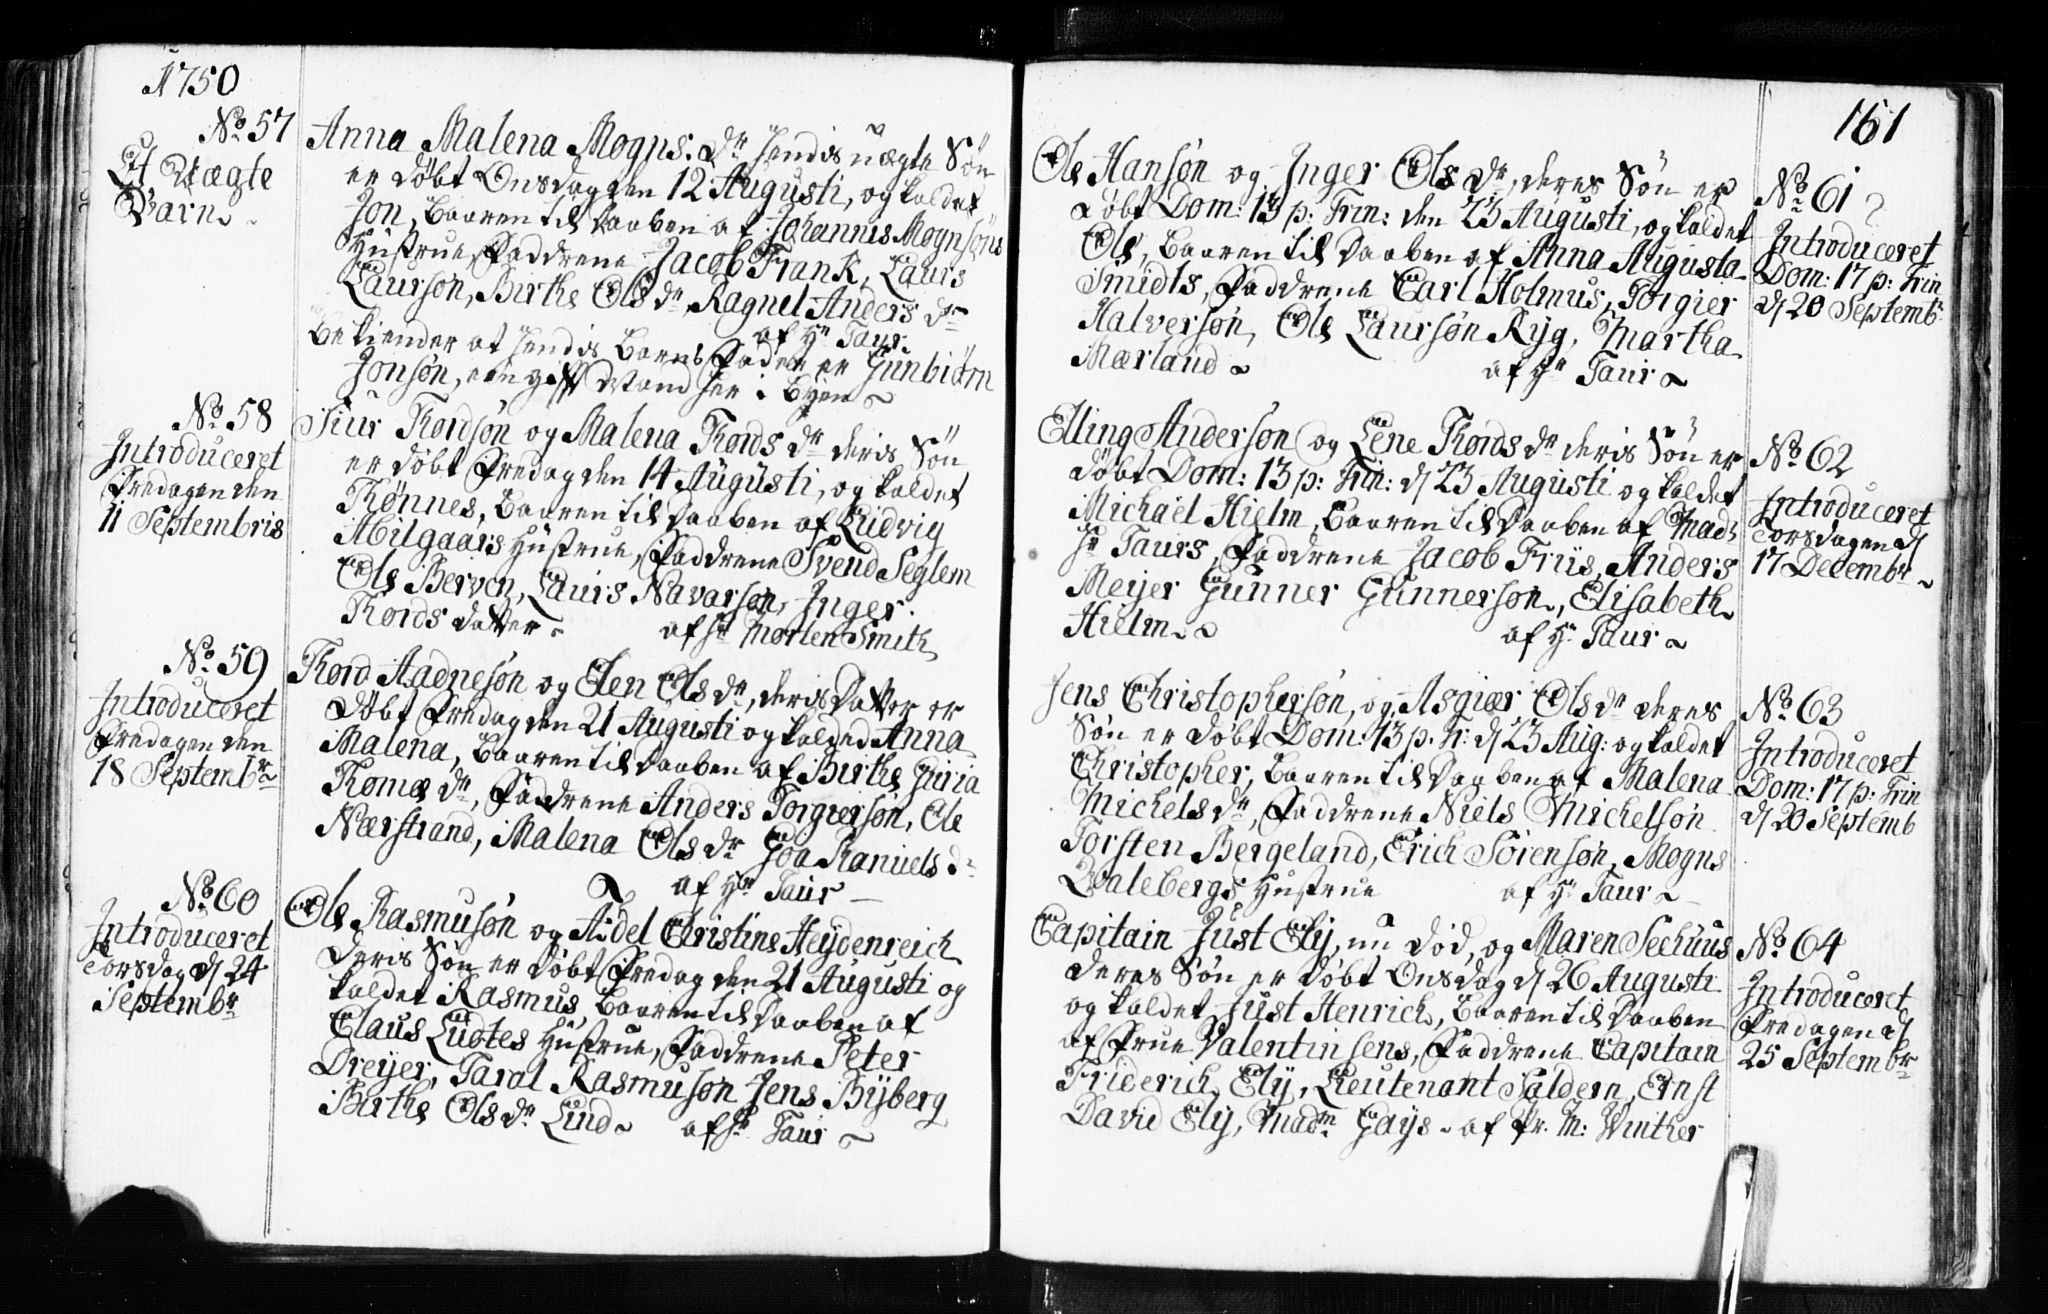 1750
No. 57
Et Uægte
Barn
Anna Malena Mogns. dr hendis uægte Søn
er døbt Onsdag den 12 Augusti, og kaldet
Jon, baaren til Daaben af Johannes Mognsøns
Hustrue, Faddrene Jacob Frank, Laurs
Laursøn, Birthe Ols dr, Ragnel Anders dr
af Hr Taur.
Bekiender at hendis Barns Fader er Gunbiørn
Jonsøn, en gift Mand her i Byen
No. 58
Introduceret
Fredagen den
11 Septembris
Siur Thordsøn og Malena Thords dr deris Søn
er døbt Fredag den 14 Augusti, og kaldet
Thønnes, baaren til Daaben af Ludvig
Abilgaars Hustrue, Faddrene Svend Seglem
Ole Berven, Laurs Navarsøn, Inger
Thords datter
af Hr Morten Smith
No. 59
Introduceret
Fredagen den
18 Septembr
Thord Aadnesøn og Elen Ols dr, deris Datter er
døbt Fredag den 21 Augusti og kalded Anna
Malena, baaren til Daaben af Birthe Guria
Thomæ dr, Faddrene Anders Torgiersøn, Ole
Nærstrand, Malena Ols dr Goa Raniels dr
af Hr Taur
No. 60
Introduceret
Torsdag d 24
Septembr
Ole Rasmusøn og Aidel Christine Heydenreich
deris Søn er døbt Fredag den 21 Augusti og
kaldet Rasmus, baaren til Daaben af
Claus Ludtes Hustrue, Faddrene Peter
Dreyer, Taral Rasmusøn Jens Byberg
Birthe Ols dr Lind
af Hr Taur
161
Ole Hansøn og Inger Ols dr, deres Søn er
døbt Dom: 13 p: Trin: den 23 Augusti, og kaldet
Ole, baaren til Daaben af Anna Augusta
Smidts, Faddrene Carl Holmus, Torgier
Halversøn, Ole Laursøn Ryg, Martha
Mærland
af Hr Taur
No. 61
Introduceret
Dom: 17 p: Trin
d 20 Septembr
Elling Andersøn og Lene Thords dr deris Søn er
døbt Dom: 13 p: Trin: d 23 Augusti og kaldet
Michael Hielm, baaren til Daaben af Mad:
Hr Taurs, Faddrene Jacob Friis, Anders
Meijer Gunner Gunnersøn, Elisabeth
Hielm
af Hr Taur
No. 62
Introduceret
Torsdagen d
17 Decembr
Jens Christophersøn, og Asgiær Ols dr deres
Søn er døbt Dom: 13 p. Tr: d 23 Aug: og kaldet
Christopher, baaren til Daaben af Malena
Michels dr, Faddrene Niels Michelsøn
Torsten Bergeland, Erich Sörensøn, Mogns
Walebergs Hustrue
af Hr Taur
No. 63
Introduceret
Dom: 17 p: Trin
d 20 Septemb
Capitain Just Ely, nu død, og Maren Sechuus
deres Søn er døbt Onsdag d 26 Augusti
og kaldet Just Henrich, baaren til Daaben
af Frue Valentinsens, Faddrene Capitain
Friderich Ely, Lieutenant Saldern, Ernst
David Ely, Madm Gays af Pr. M: Winther
No. 64
Introduceret
Fredagen d
25 Septembr